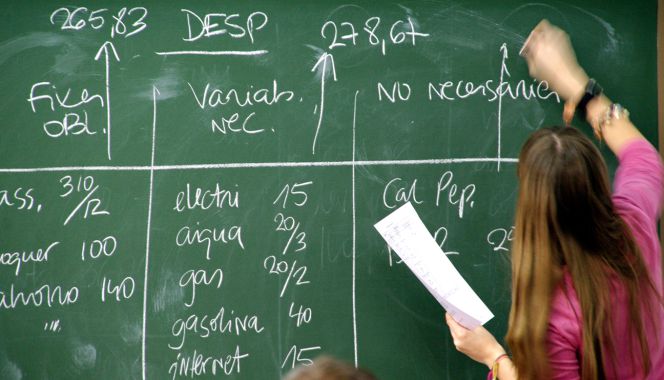 265,83 DESP 278,67
Fixes Variab. No necessàries
OBL. NEC.
ass. 310/12 electri 15 Cal Pep.
oquer 100 aigua 20/3
140 gas 20/2
gasolina 40
internet 15